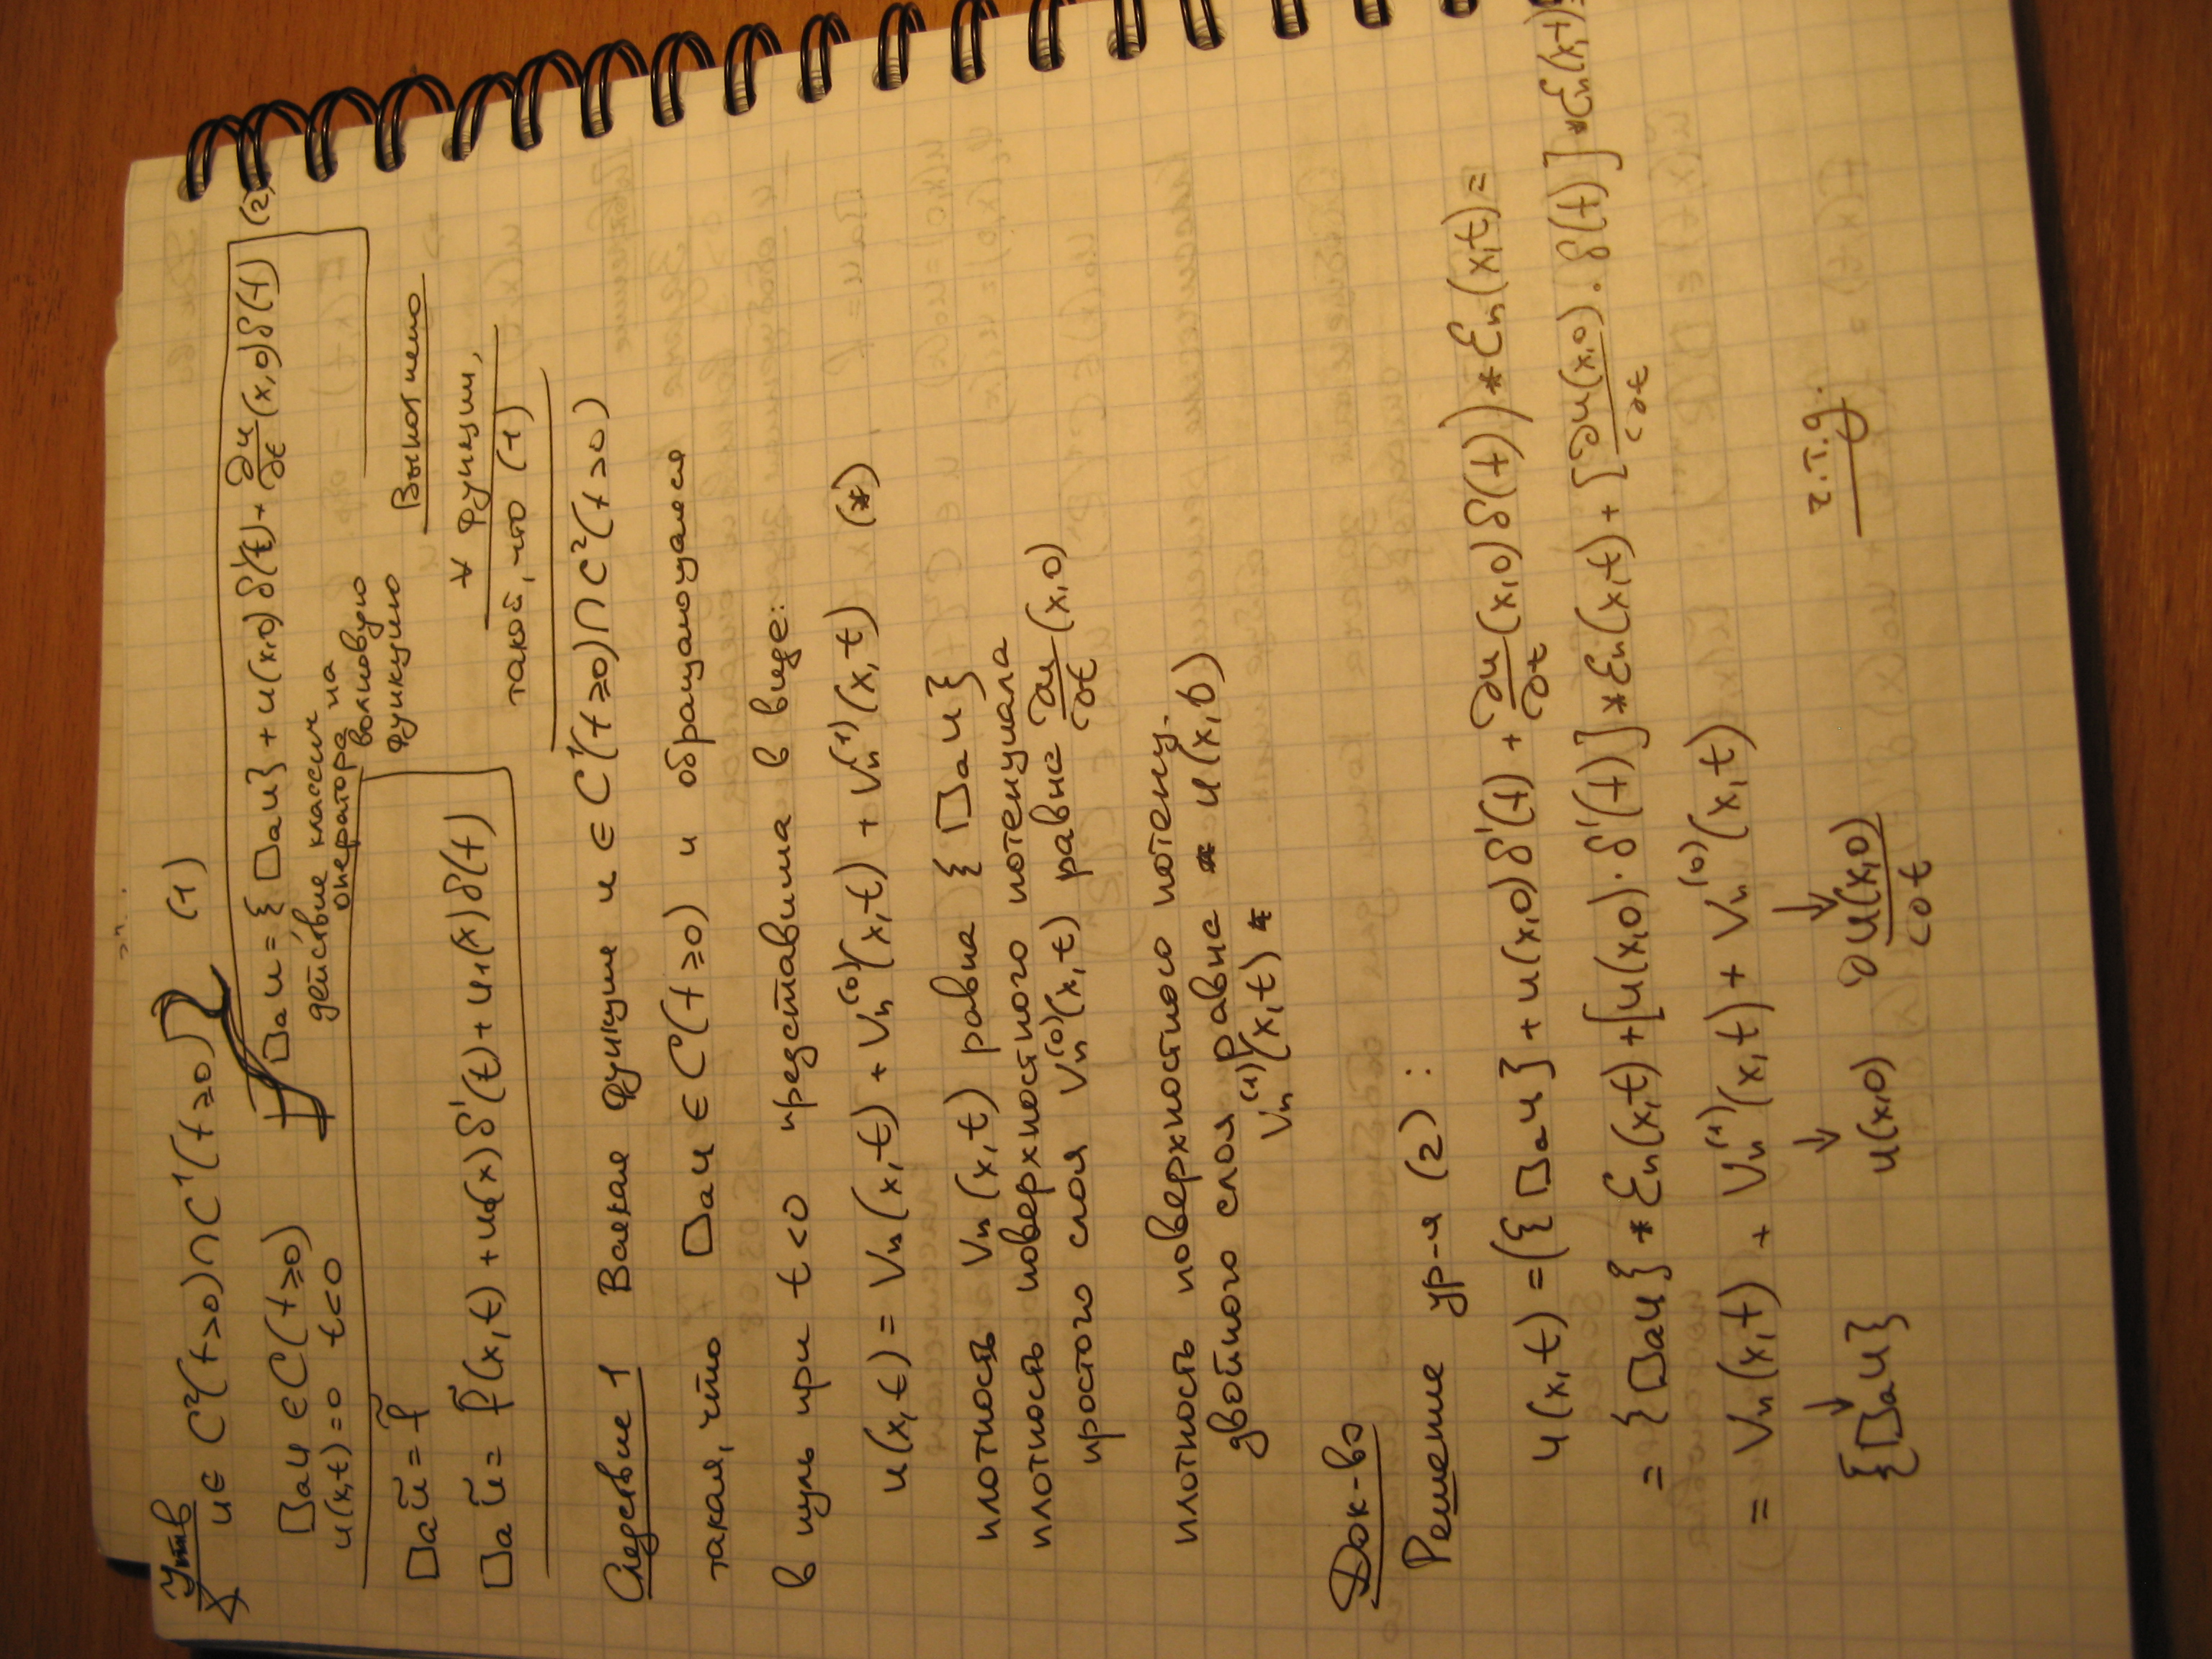 Утв
∀ u ∈ C²(t>0) ∩ C¹(t≥0) (1)
□ₐu ∈ C(t≥0)
u(x,t)=0 t<0
□ₐu = {□ₐu} + u(x,0)δ'(t) + ∂u/∂t (x,0)δ(t) (2)
действие классич
оператора на
волновую
функцию
Выполнено
∀ функции,
такой, что (1)
□ₐũ = f̃
□ₐũ = f̃(x,t) + u₀(x)δ'(t) + u₁(x)δ(t)
Следствие 1 Всякая функция u ∈ C¹(t≥0) ∩ C²(t>0)
такая, что □ₐu ∈ C(t≥0) и обращающаяся
в нуль при t<0 представима в виде:
u(x,t) = Vₙ(x,t) + Vₙ⁽⁰⁾(x,t) + Vₙ⁽¹⁾(x,t) (*)
плотность Vₙ(x,t) равна {□ₐu}
плотность поверхностного потенциала
простого слоя Vₙ⁽⁰⁾(x,t) равна ∂u/∂t (x,0)
плотность поверхностного потенц.
двойного слоя равна u(x,0)
Vₙ⁽¹⁾(x,t)
Док-во
Решение ур-я (2):
u(x,t) = ({□ₐu} + u(x,0)δ'(t) + ∂u/∂t (x,0)δ(t)) * Ɛₙ(x,t) =
= {□ₐu} * Ɛₙ(x,t) + [u(x,0)·δ'(t)] * Ɛₙ(x,t) + [∂u(x,0)/∂t · δ(t)] * Ɛₙ(x,t) =
= Vₙ(x,t) + Vₙ⁽¹⁾(x,t) + Vₙ⁽⁰⁾(x,t)
↓ ↓ ↓
{□ₐu} u(x,0) ∂u(x,0)/∂t
ч.т.д.